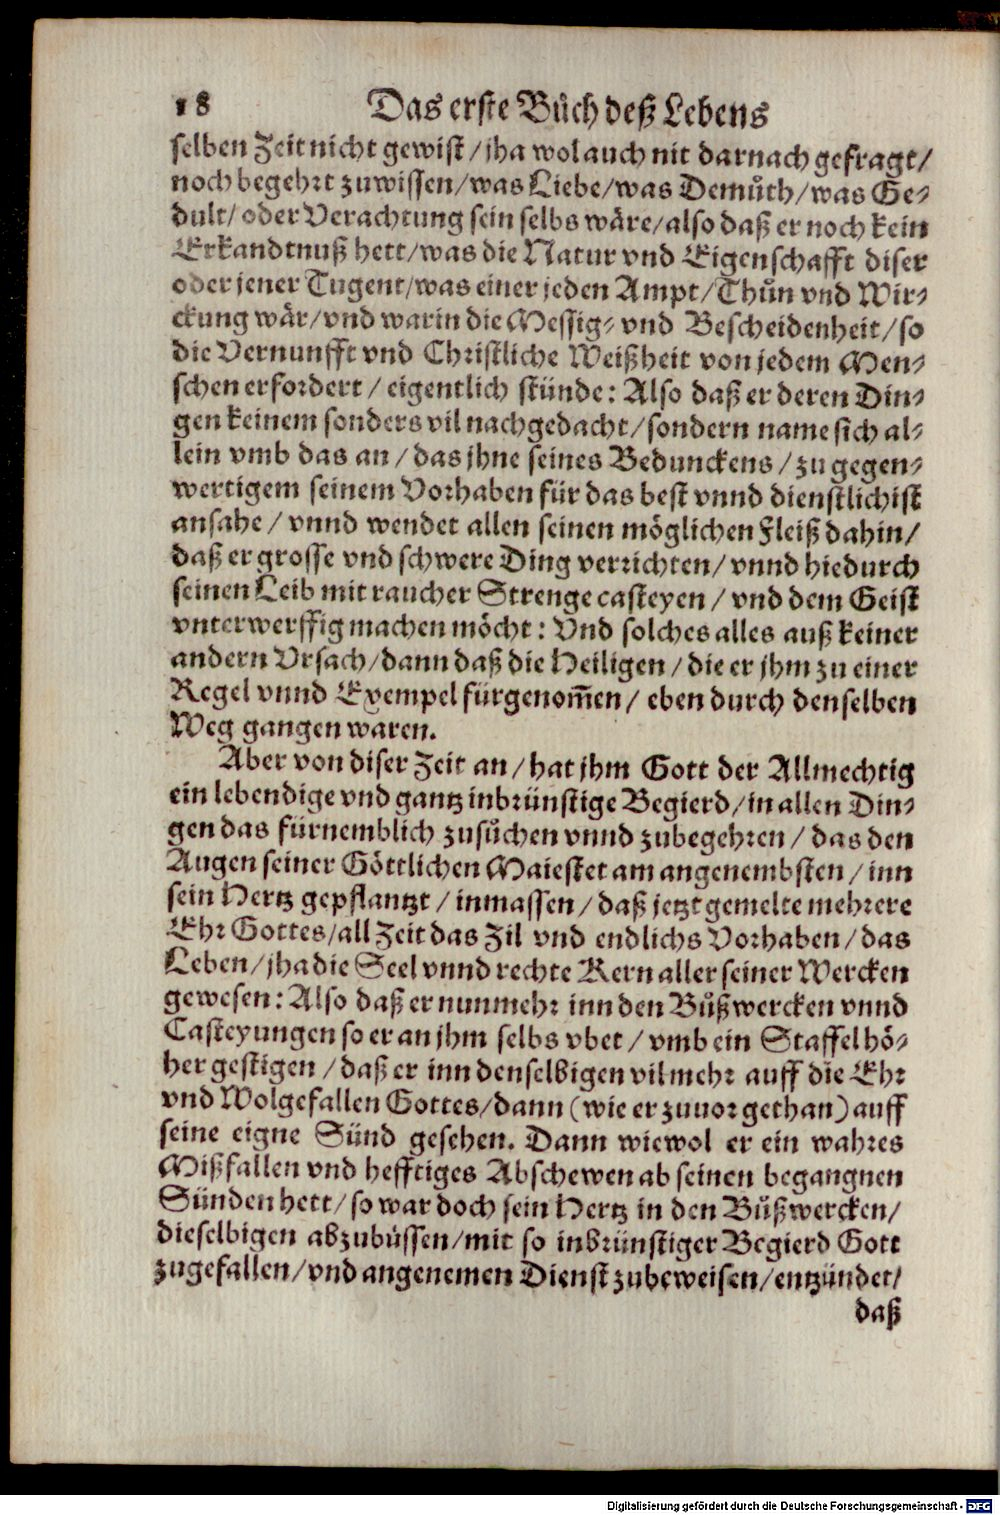 18 Das erste Bůch deß Lebens
selben Zeit nicht gewist / jha wol auch nit darnach gefragt /
noch begehrt zuwissen / was Liebe / was Demůth / was Ge-
dult / oder Verachtung sein selbs wäre / also daß er noch kein
Erkandtnuß hett / was die Natur vnd Eigenschafft diser
oder jener Tugent / was einer jeden Ampt / Thůn vnd Wir-
ckung wär / vnd warin die Messig- vnd Bescheidenheit / so
die Vernunfft vnd Christliche Weißheit von jedem Men-
schen erfordert / eigentlich stünde: Also daß er deren Din-
gen keinem sonders vil nachgedacht / sondern name sich al-
lein vmb das an / das jhne seines Bedunckens / zu gegen-
wertigem seinem Vorhaben für das best vnnd dienstlichist
ansahe / vnnd wendet allen seinen möglichen Fleiß dahin /
daß er grosse vnd schwere Ding verrichten / vnnd hiedurch
seinen Leib mit raucher Strenge casteyen / vnd dem Geist
vnterwerffig machen möcht: Vnd solches alles auß keiner
andern Vrsach / dann daß die Heiligen / die er jhm zu einer
Regel vnnd Exempel fürgenom̃en / eben durch denselben
Weg gangen waren.
Aber von diser Zeit an / hat jhm Gott der Allmechtig
ein lebendige vnd gantz inbrünstige Begierd / in allen Din-
gen das fürnemblich zusůchen vnnd zubegehren / das den
Augen seiner Göttlichen Maiestet am angenembsten / inn
sein Hertz gepflantzt / inmassen / daß jetzt gemelte mehrere
Ehr Gottes / all Zeit das Zil vnd endlichs Vorhaben / das
Leben / jha die Seel vnnd rechte Kern aller seiner Wercken
gewesen: Also daß er nunmehr inn den Bůßwercken vnnd
Casteyungen so er an jhm selbs vbet / vmb ein Staffel hö-
her gestigen / daß er inn denselbigen vil mehr auff die Ehr
vnd Wolgefallen Gottes / dann (wie er zuuor gethan) auff
seine eigne Sünd gesehen. Dann wiewol er ein wahres
Mißfallen vnd hefftiges Abschewen ab seinen begangnen
Sünden hett / so war doch sein Hertz in den Bůßwercken /
dieselbigen abzubüssen / mit so inbrünstiger Begierd Gott
zugefallen / vnd angenemen Dienst zubeweisen / entzündet /
daß
Digitalisierung gefördert durch die Deutsche Forschungsgemeinschaft - DFG